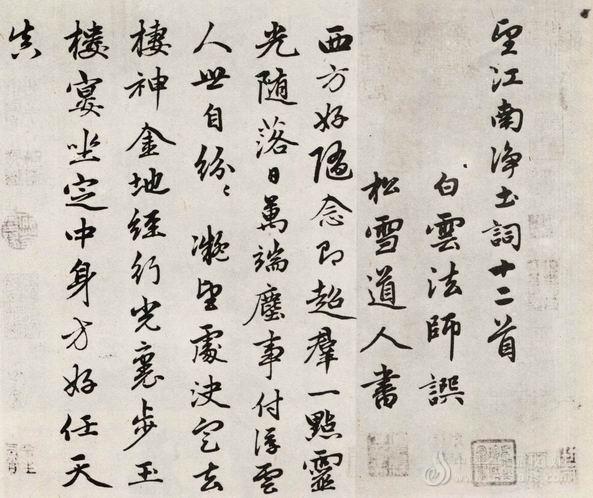 望江南净土詞十二首
白雲法師譔
松雪道人書
西方好隨念即超羣一點靈
光隨落日萬端塵事付浮雲
人世自紛〻凝望處決定去
棲神金地經行光裏步玉
樓宴坐定中身方好任天
真